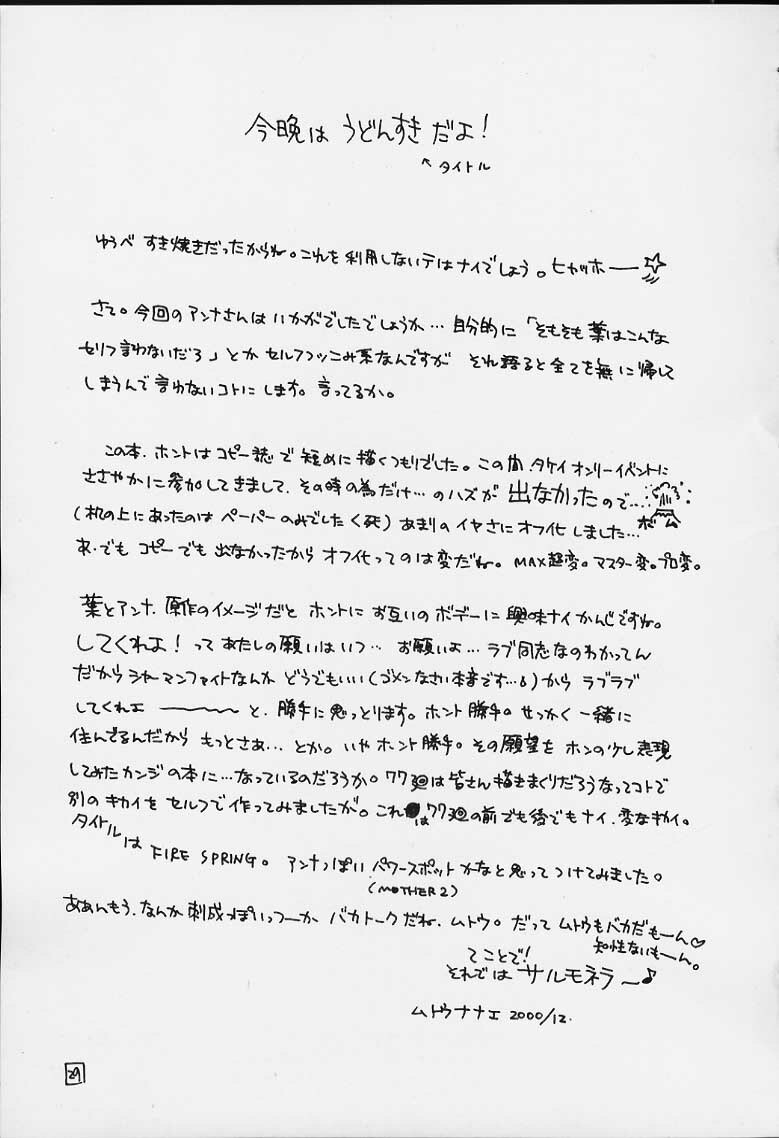 今晩は うどんすき だよ!
↖タイトル
ゆうべ すき焼きだったからね。これを利用しないテはナイでしょう。ヒャッホー――☆
さて。今回のアンナさんは いかがでしたでしょうか… 自分的に「そもそも葉はこんな
セリフ言わないだろ」とか セルフツッこみ系なんですが それ語ると全てを無に帰して
しまうんで言わないコトにします。言ってるか。
この本、ホントはコピー誌で短めに描くつもりでした。この間、タケイオンリーイベントに
ささやかに参加してきまして、その時の為だけ…のハズが 出なかったので…
ボム
(机の上にあったのは ペーパーのみでした<死) あまりのイヤさにオフ化しました…
あ、でも コピーでも 出なかったから オフ化ってのは変だね。MAX超変。マスター変。プロ変。
葉とアンナ、原作のイメージだと ホントにお互いのボデーに興味ナイかんじですね。
してくれよ! って あたしの願いはいつ… お願いよ… ラブ同志なのわかってん
だからシャーマンファイトなんか どうでもいい(ゴメンなさい本音です…)から ラブラブ
してくれェ ――――〜 と、勝手に思っとります。ホント勝手。せっかく一緒に
住んでるんだから もっとさあ… とか。いや ホント勝手。その願望を ホンの少し表現
してみたカンジの本に…なっているのだろうか。77廻は皆さん描きまくりだろうなってコトで
別のキカイを セルフで作ってみましたが。これは77廻の前でも後でもナイ、変なキカイ。
タイトルは FIRE SPRING。 アンナっぽい パワースポットかなと思って つけてみました。
(MOTHER2)
ああんもう、なんか 刺成っぽいっつーか バカトークだね、ムトウ。だって ムトウもバカだもーん♡
知性ないもーん。
てことで!
それでは サルモネラ 〜♪
ムトウナナエ 2000/12.
29